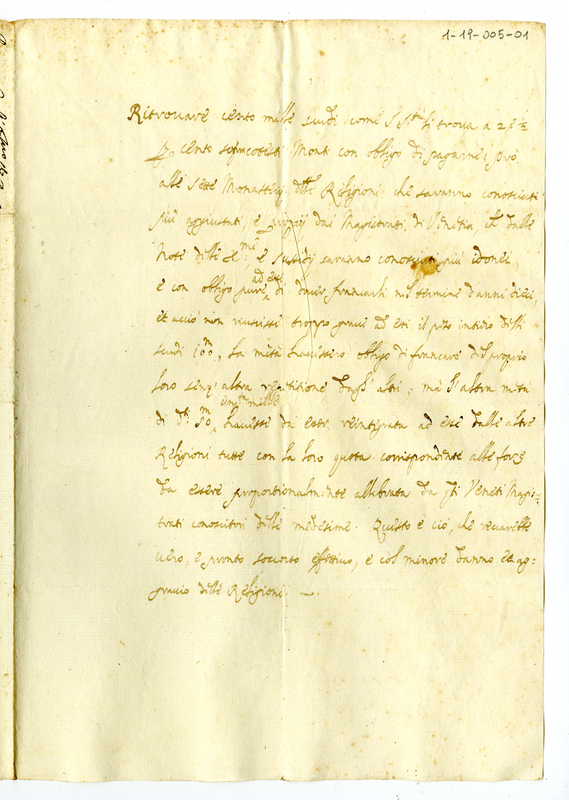 1-19-005-01
Ritrovare cento mille scudi come S. Stà si trova a 2 e ½
per cento sopra cotesti Monti con obligo di pagarne i prò
alle sette Monasterij dette Religioni, che saranno conosciuti
più aggiustati, e proprij dai Magistrati di Venetia, et dalle
Note delle elme: e sussidij saranno conosciuti più idonei,
e con obligo pure ad esse di dover francarli nel termine d'anni dieci,
et acciò non riuscisse troppo grave ad esse il peso intiero delli
scudi 100m, la metà havessero obligo di francare del proprio
loro senz'altra repetitione dagl'altri; mà l'altra metà
di di 50m cinqta mille havesse da esser reintegrata ad esse dalle altre
Religioni tutte con la loro quota corrispondente alle forze
da essere proportionalmente allibrata da qti Veneti Magis=
trati conoscitori delle medesime. Questo è ciò, che recarebbe
vero, e pronto soccorso effettivo, e col minore danno et ag=
gravio delle Religioni.